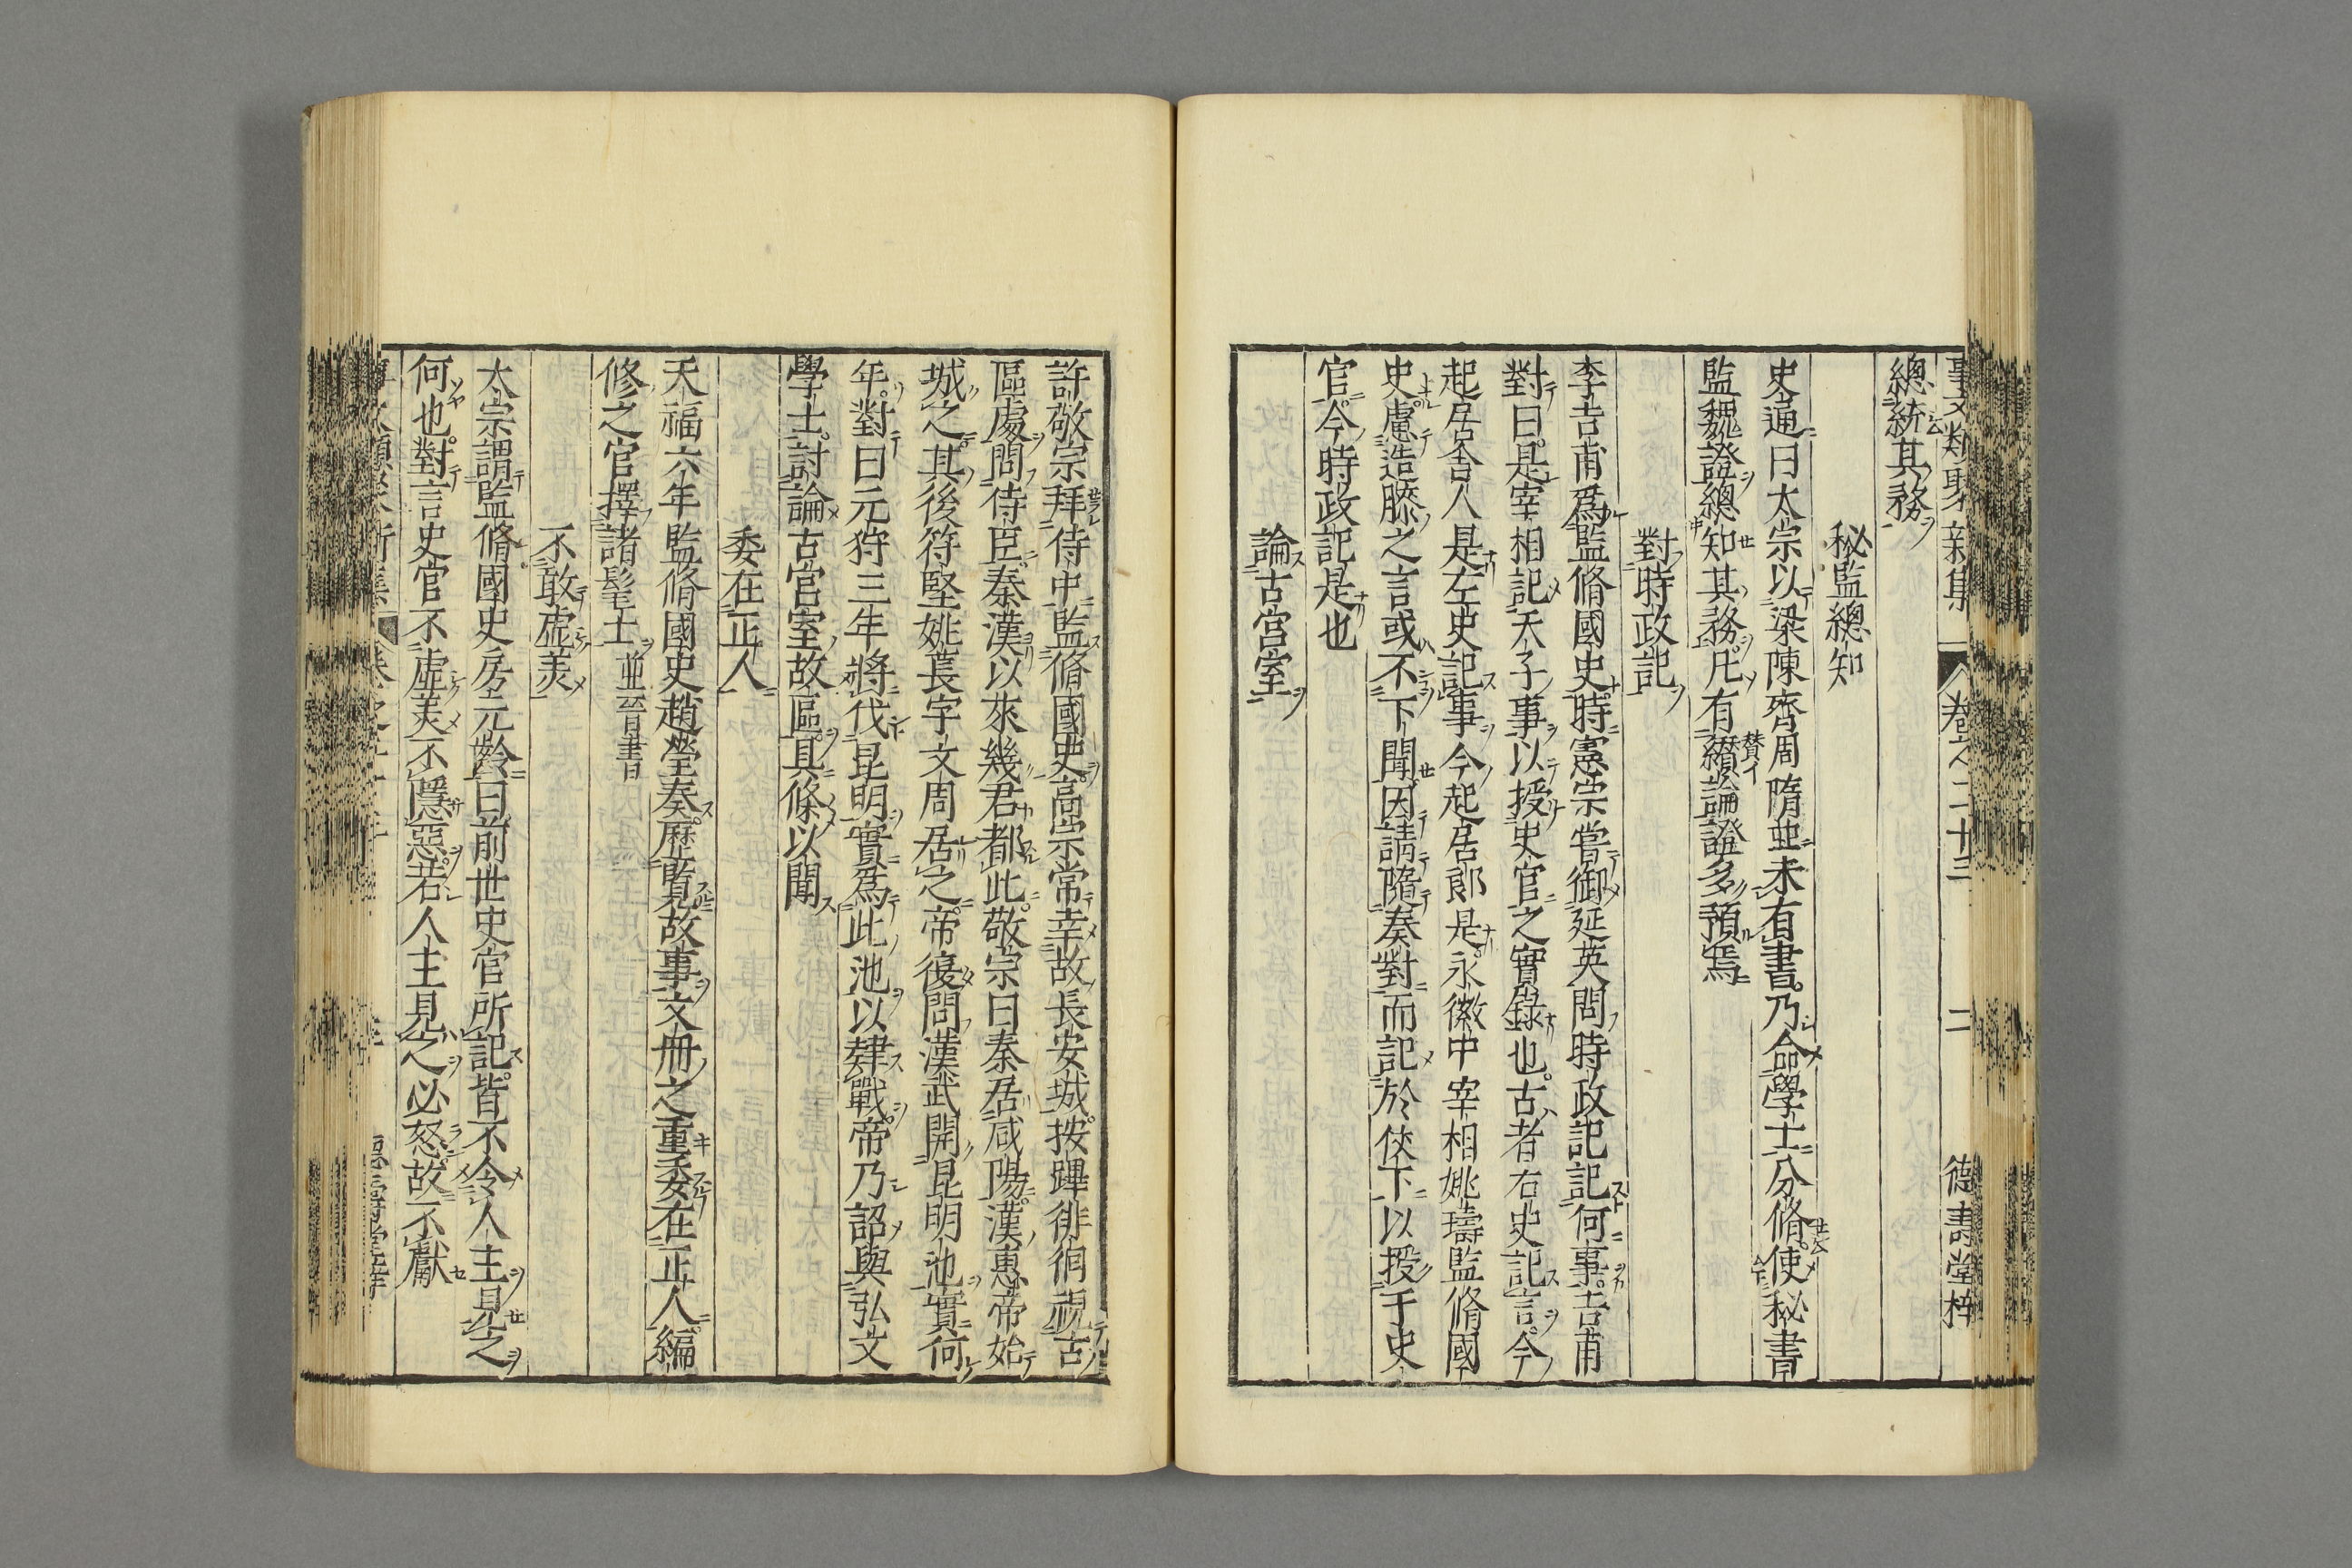 事文類聚新集 卷之二十三 二 德壽堂梓
總統其務
秘監總知
史通曰太宗以梁陳齊周隋並未有書乃命學士分脩使秘書
監魏證總知其務凡有纘論證多預焉
對時政記
李吉甫爲監脩國史時憲宗嘗御延英問時政記記何事吉甫
對曰是宰相記天子事以授史官之實錄也古者右史記言今
起居舍人是左史記事今起居郎是永徽中宰相姚璹監脩國
史慮造膝之言或不下聞因請隨奏對而記於伏下以授于史
官今時政記是也
論古宮室
許敬宗拜侍中監脩國史高宗常幸故長安城按蹕徘徊視古
區處問侍臣秦漢以來幾君都此敬宗曰秦居咸陽漢惠帝始
城之其後符堅姚萇宇文周居之帝復問漢武開昆明池實何
年對曰元狩三年將伐昆明實爲此池以肄戰帝乃詔與弘文
學士討論古宮室故區具條以聞
委在正人
天福六年監脩國史趙瑩奏歷覽故事文冊之重委在正人編
修之官擇諸髦士並晉書
不敢虛美
太宗謂監脩國史房元齡曰前世史官所記皆不令人主見之
何也對言史官不虛美不隱惡若人主見之必怒故不獻